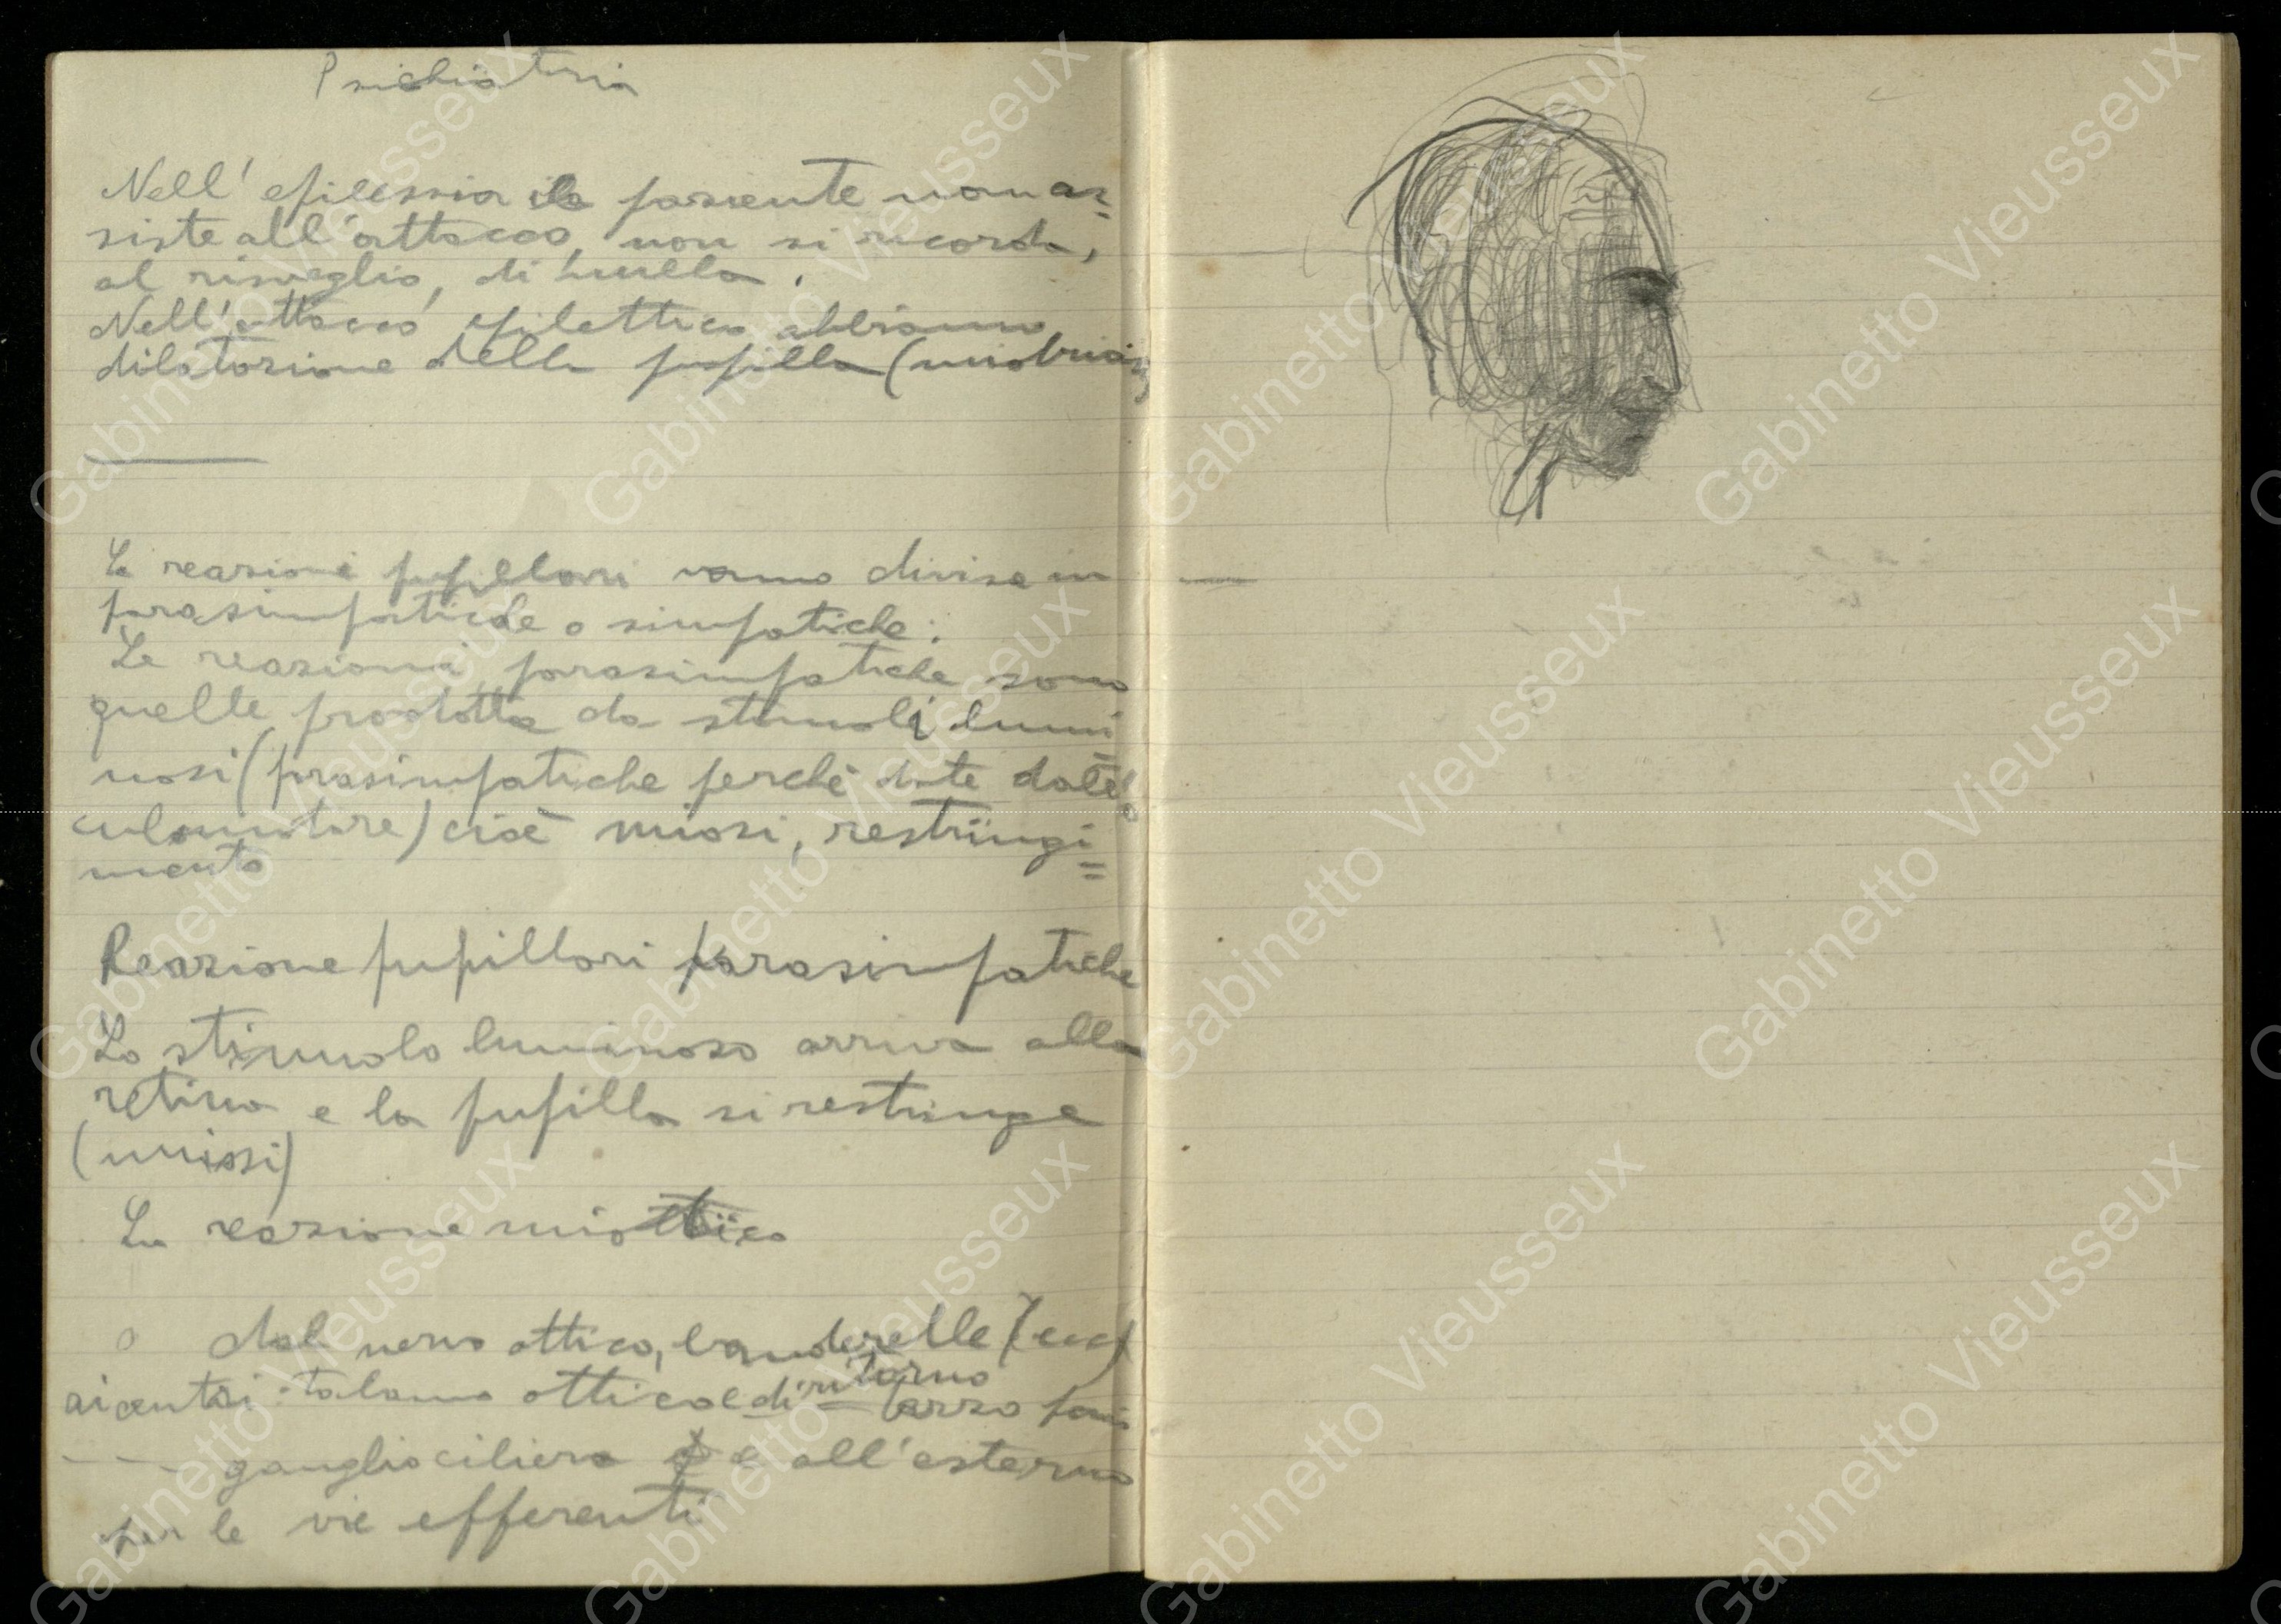 Psichiatria
Nell'epilessia il paziente non as=
siste all'attacco, non si ricorda,
al risveglio, di nulla.
Nell'attacco epilettico abbiamo
dilatazione della pupilla (midriasi)
Le reazioni pupillari vanno divise in
parasimpatiche o simpatiche.
Le reazioni parasimpatiche sono
quelle prodotte da stimoli lumi=
nosi (parasimpatiche perchè date dall'o
culomotore) cioè miosi, restringi=
mento
Reazione pupillari parasimpatiche
Lo stimolo luminoso arriva alla
retina e la pupilla si restringe
(miosi)
La reazione miotica
dal nervo ottico, banderelle (ecc)
ai centri talamo ottico e di ritorno terzo paio
ganglio ciliare e all'esterno
per le vie efferenti
Gabinetto Vieusseux